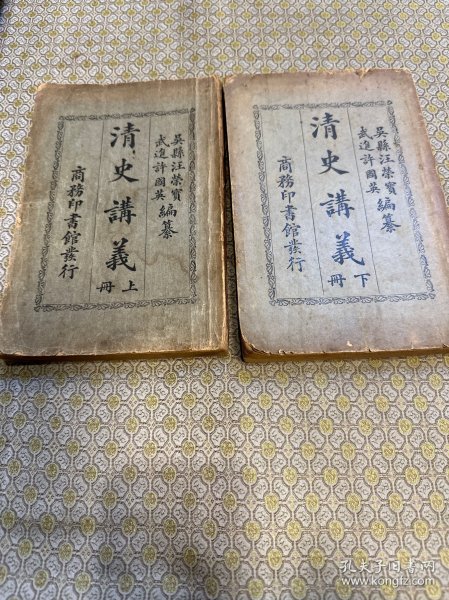 吳縣汪榮寶
武進許國英
編纂
清史講義
上冊
商務印書館發行
吳縣汪榮寶
武進許國英
編纂
清史講義
下冊
商務印書館發行
孔夫子旧书网
www.kongfz.com